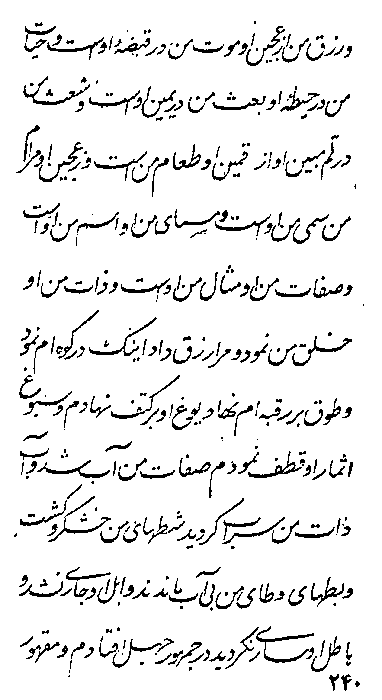 ورزق من از عجین او موت من در قبضهٔ اوست و حیات
من در حیطهٔ او بعث من در یمین اوست و شعث من
در کم مبین او از قمین او طعام من است و ز عجین او مرام
من سمی من اوست و سمای من او اسم من اوست
و صفات من او مثال من اوست و ذات من او
خلق من نمود و مرا رزق داد اینک در کوه ام نمود
و طوق بر رقبه ام نهاد یوغ او بر کتف نهادم و سبوغ
اثمار او قطف نمودم صفات من آب شد و آب
ذات من سراب گردید شطهای من خشک و گشت
و بطهای وطای من بی آب ماندند وابل او جاری نشد و
با طل او ساری نگردید در جمهور جهل افتادم و مقهور
۲۴۰